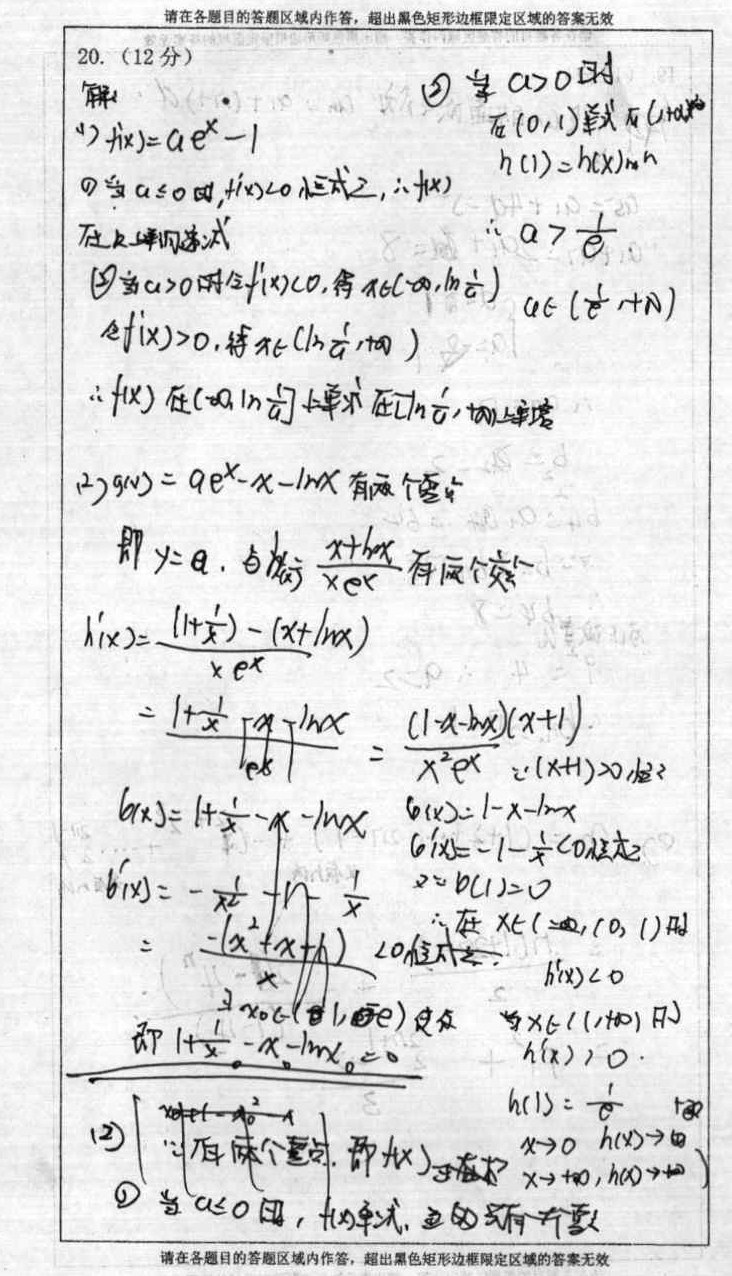 请在各题目的答题区域内作答，超出黑色矩形边框限定区域的答案无效
20.（12分）
解:
(1) f'(x)=ae^x-1
① 当 a≤0 时, f'(x)<0 恒成立, ∴f(x)
在R上单调递减
② 当a>0时令f'(x)<0, 得 x∈(-∞, ln 1/a)
令f'(x)>0, 得 x∈(ln 1/a, +∞)
∴ f(x) 在(-∞, ln 1/a]上单减 在[ln 1/a, +∞)上单增
(2) g(x)= ae^x-x-lnx 有两个零点
即 y=a. 与h(x)= (x+lnx)/(xe^x) 有两个交点
h'(x)= ((1+1/x)-(x+lnx))/(xe^x)
= (1+1/x-x-lnx)/(e^x) = ((1-x-lnx)(x+1))/(x^2e^x) ∵(x+1)>0恒
b(x)= 1+1/x-x-lnx
b'(x)= -1/x^2-1-1/x
= (-(x^2+x+1))/x <0恒成立.
∃ x0∈(1, e) 使
即 1+1/x0-x0-lnx0=0
b(x)=1-x-lnx
b'(x)=-1-1/x<0恒成立
b(1)=0
∴在 x∈(0, 1) 时
h'(x)<0
当x∈(1,+∞) 时
h'(x)>0.
h(1)= 1/e
x→0 h(x)→∞
x→+∞, h(x)→+∞
(2)
∵有两个零点, 即f(x)
① 当 a≤0 时, f(x)单减, 只有一个零点
② 当 a>0 时
在(0,1)单减 在(1,+∞)增
h(1)=h(x)min
∴ a>1/e
a∈(1/e, +∞)
请在各题目的答题区域内作答，超出黑色矩形边框限定区域的答案无效